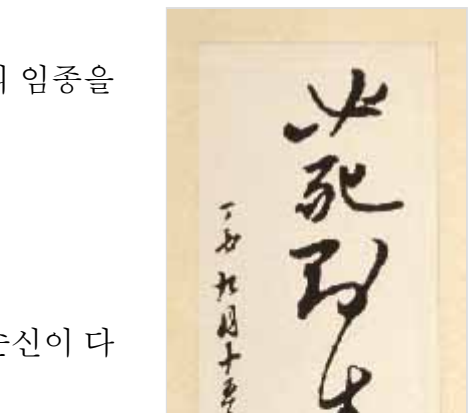 임종을
신이 다
必死則生
丁酉九月十五